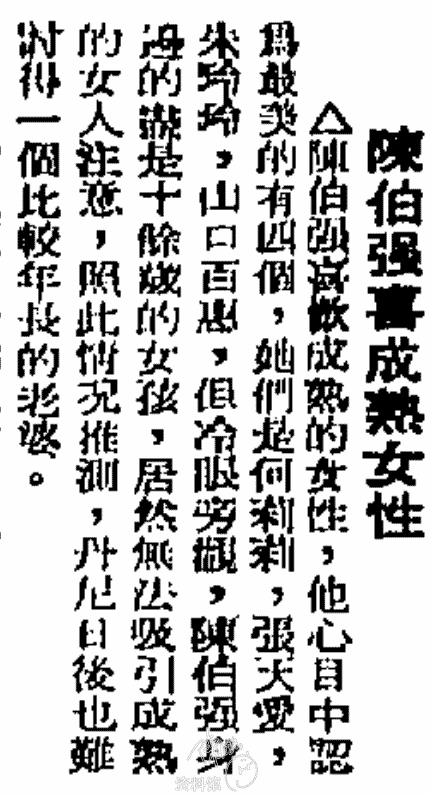 陳伯强喜成熟女性
△陳伯强喜歡成熟的女性，他心目中認
爲最美的有四個，她們是何莉莉，張天愛，
朱玲玲，山口百惠，但冷眼旁觀，陳伯强身
邊的 是十餘歲的女孩，居然無法吸引成熟
的女人注意，照此情况推測，丹尼日後也難
討得一個比較年長的老婆。
資料館